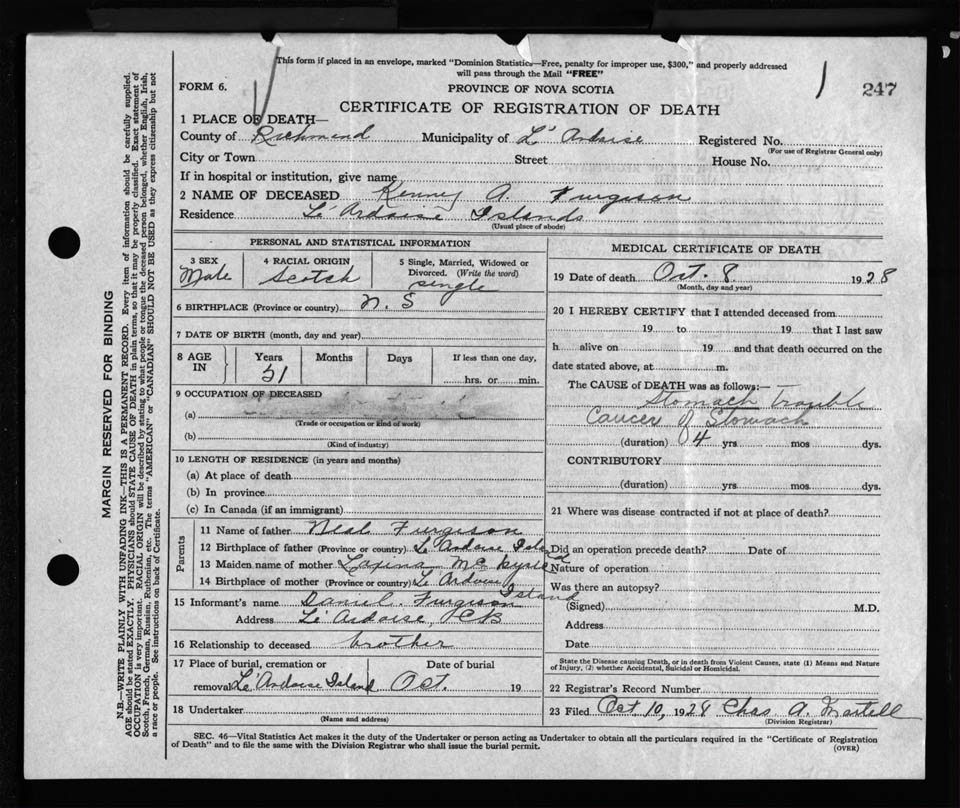 This form if placed in an envelope, marked "Dominion Statistics—Free, penalty for improper use, $300," and properly addressed
will pass through the Mail "FREE"
FORM 6.
PROVINCE OF NOVA SCOTIA
247
CERTIFICATE OF REGISTRATION OF DEATH
1 PLACE OF DEATH—
County of Richmond Municipality of L'Ardoise Registered No.
(For use of Registrar General only)
City or Town Street House No.
If in hospital or institution, give name
2 NAME OF DECEASED Kenney A. Furgison
Residence Le'Ardoise Islands
(Usual place of abode)
PERSONAL AND STATISTICAL INFORMATION
3 SEX 4 RACIAL ORIGIN 5 Single, Married, Widowed or
Divorced. (Write the word)
Male Scotch single
6 BIRTHPLACE (Province or country) N. S
7 DATE OF BIRTH (month, day and year)
8 AGE IN Years Months Days If less than one day,
51 hrs. or min.
9 OCCUPATION OF DECEASED
(a)
(Trade or occupation or kind of work)
(b)
(Kind of industry)
10 LENGTH OF RESIDENCE (in years and months)
(a) At place of death
(b) In province
(c) In Canada (if an immigrant)
Parents
11 Name of father Neal Furgison
12 Birthplace of father (Province or country) Le Ardoise Island
13 Maiden name of mother
14 Birthplace of mother (Province or country) Le Ardoise Island
15 Informant's name Daniel Furgison
Address Le Ardoise, CB
16 Relationship to deceased brother
17 Place of burial, cremation or Date of burial
removal Le'Ardoise Island Oct. 19
18 Undertaker
(Name and address)
MEDICAL CERTIFICATE OF DEATH
19 Date of death Oct. 8 1928
(Month, day and year)
20 I HEREBY CERTIFY that I attended deceased from
19 to 19 that I last saw
h alive on 19 and that death occurred on the
date stated above, at m.
The CAUSE of DEATH was as follows:—
Stomach Trouble
Cancer of Stomach
(duration) 4 yrs mos dys.
CONTRIBUTORY
(duration) yrs mos dys.
21 Where was disease contracted if not at place of death?
Did an operation precede death? Date of
Nature of operation
Was there an autopsy?
(Signed) M.D.
Address
Date
State the Disease causing Death, or in death from Violent Causes, state (1) Means and Nature
of Injury, (2) whether Accidental, Suicidal or Homicidal.
22 Registrar's Record Number
23 Filed Oct 10, 1928 Chas A. Martell
(Division Registrar)
SEC. 46—Vital Statistics Act makes it the duty of the Undertaker or person acting as Undertaker to obtain all the particulars required in the "Certificate of Registration
of Death" and to file the same with the Division Registrar who shall issue the burial permit.
(OVER)
MARGIN RESERVED FOR BINDING
N.B.—WRITE PLAINLY WITH UNFADING INK—THIS IS A PERMANENT RECORD. Every item of information should be carefully supplied.
AGE should be stated EXACTLY. PHYSICIANS should STATE CAUSE OF DEATH in plain terms, so that it may be properly classified. Exact statement of
OCCUPATION is very important. RACIAL ORIGIN will be described by stating to what people or tongue the deceased person belonged, whether English, Irish,
Scotch, French, German, Russian, Ruthenian, etc. The terms "AMERICAN" or "CANADIAN" SHOULD NOT BE USED as they express citizenship but not
a race or people. See instructions on back of Certificate.